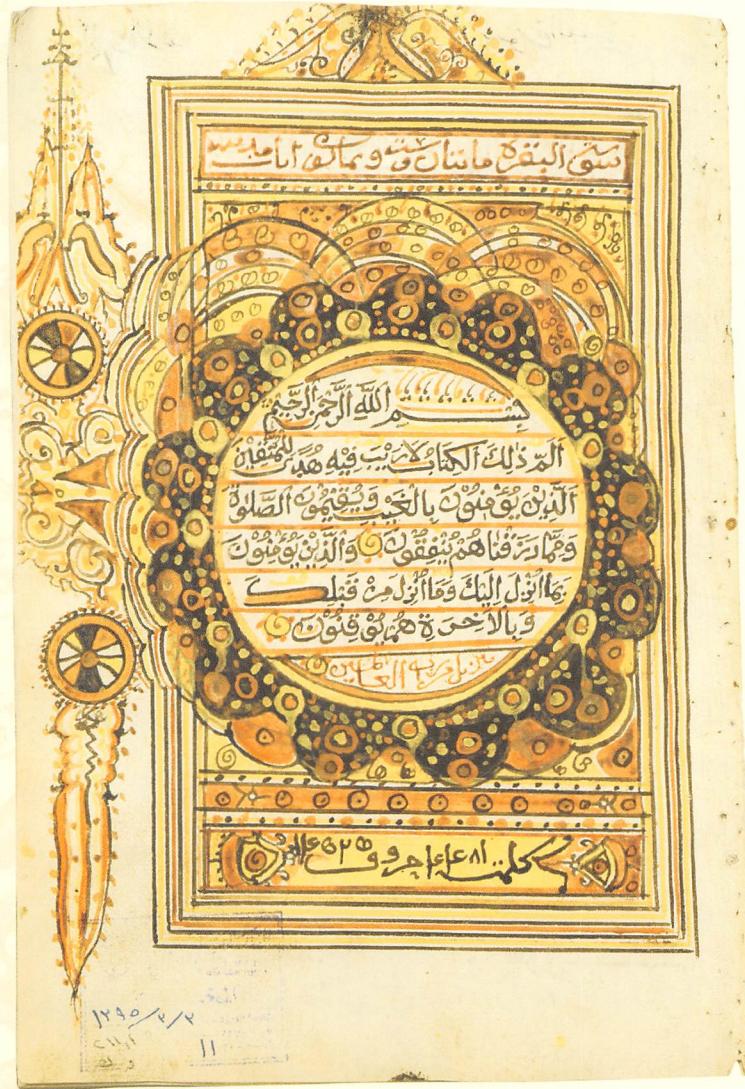 سورة البقرة مائتان وسته وثمانون ايات مدنيه
بِسْمِ اللَّهِ الرَّحْمَنِ الرَّحِيمِ
الٓمّ ذٰلِكَ الْكِتَابُ لَا رَيْبَ فِيهِ هُدًى لِلْمُتَّقِينَ
الَّذِينَ يُؤْمِنُونَ بِالْغَيْبِ وَيُقِيمُونَ الصَّلٰوةَ
وَمِمَّا رَزَقْنَاهُمْ يُنْفِقُونَ وَالَّذِينَ يُؤْمِنُونَ
بِمَا اُنْزِلَ اِلَيْكَ وَمَا اُنْزِلَ مِنْ قَبْلِكَ
وَبِالْاٰخِرَةِ هُمْ يُوقِنُونَ
العالمين
كلمته حروف
١٣٩٥/٣/٣
١١